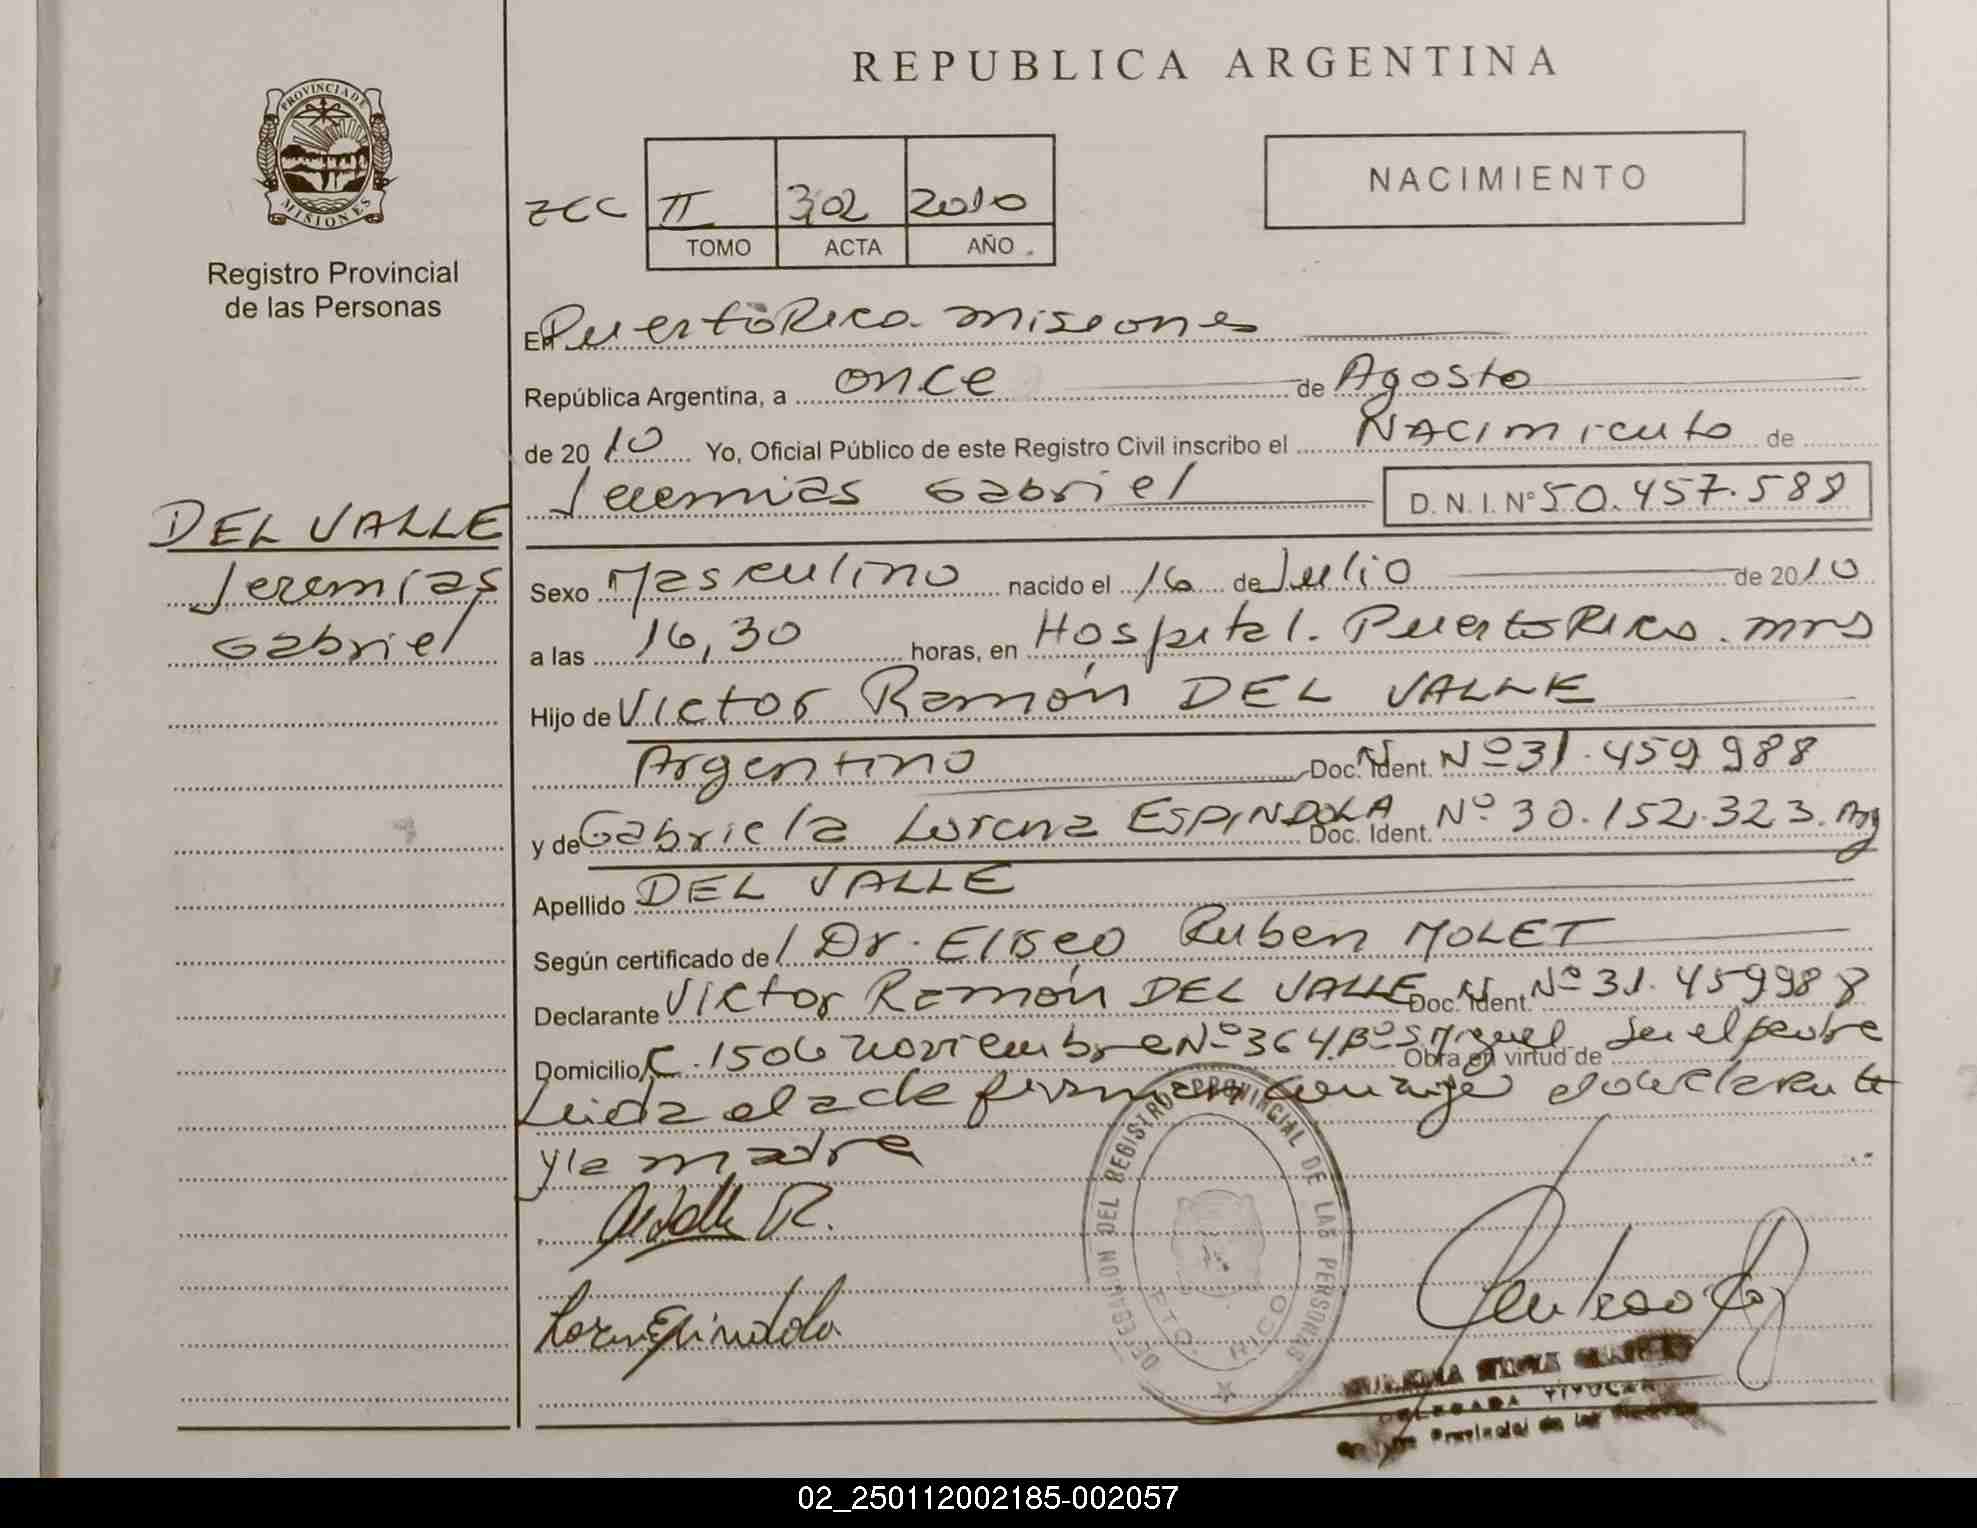 REPUBLICA ARGENTINA
PROVINCIA DE MISIONES
Registro Provincial
de las Personas
NACIMIENTO
II 302 2010
TOMO ACTA AÑO
En Puerto Rico. Misiones
República Argentina, a once de Agosto
de 2010 Yo, Oficial Público de este Registro Civil inscribo el Nacimiento de
Jeremias Gabriel D.N.I. Nº 50.457.588
DEL VALLE
Jeremias
Gabriel
Sexo Masculino nacido el 16 de Julio de 2010
a las 16,30 horas, en Hospital. Puerto Rico. mns
Hijo de Victor Ramón DEL VALLE
Argentino Doc. Ident. Nº 31.459 988
y de Gabriela Lorena ESPINDOLA Doc. Ident. Nº 30.152.323. Arg
Apellido DEL VALLE
Según certificado de l Dr. Eliseo Ruben MOLET
Declarante Victor Ramón DEL VALLE Doc. Ident. Nº 31.459988
Domicilio C. 150 Noviembre Nº 364 Bº S Miguel Obra en virtud de ser el padre
Leida el acta firman conmigo el declarante
y la madre
DELEGACION DEL REGISTRO PROVINCIAL DE LAS PERSONAS
PTO. RICO
Provincial de las
02_250112002185-002057